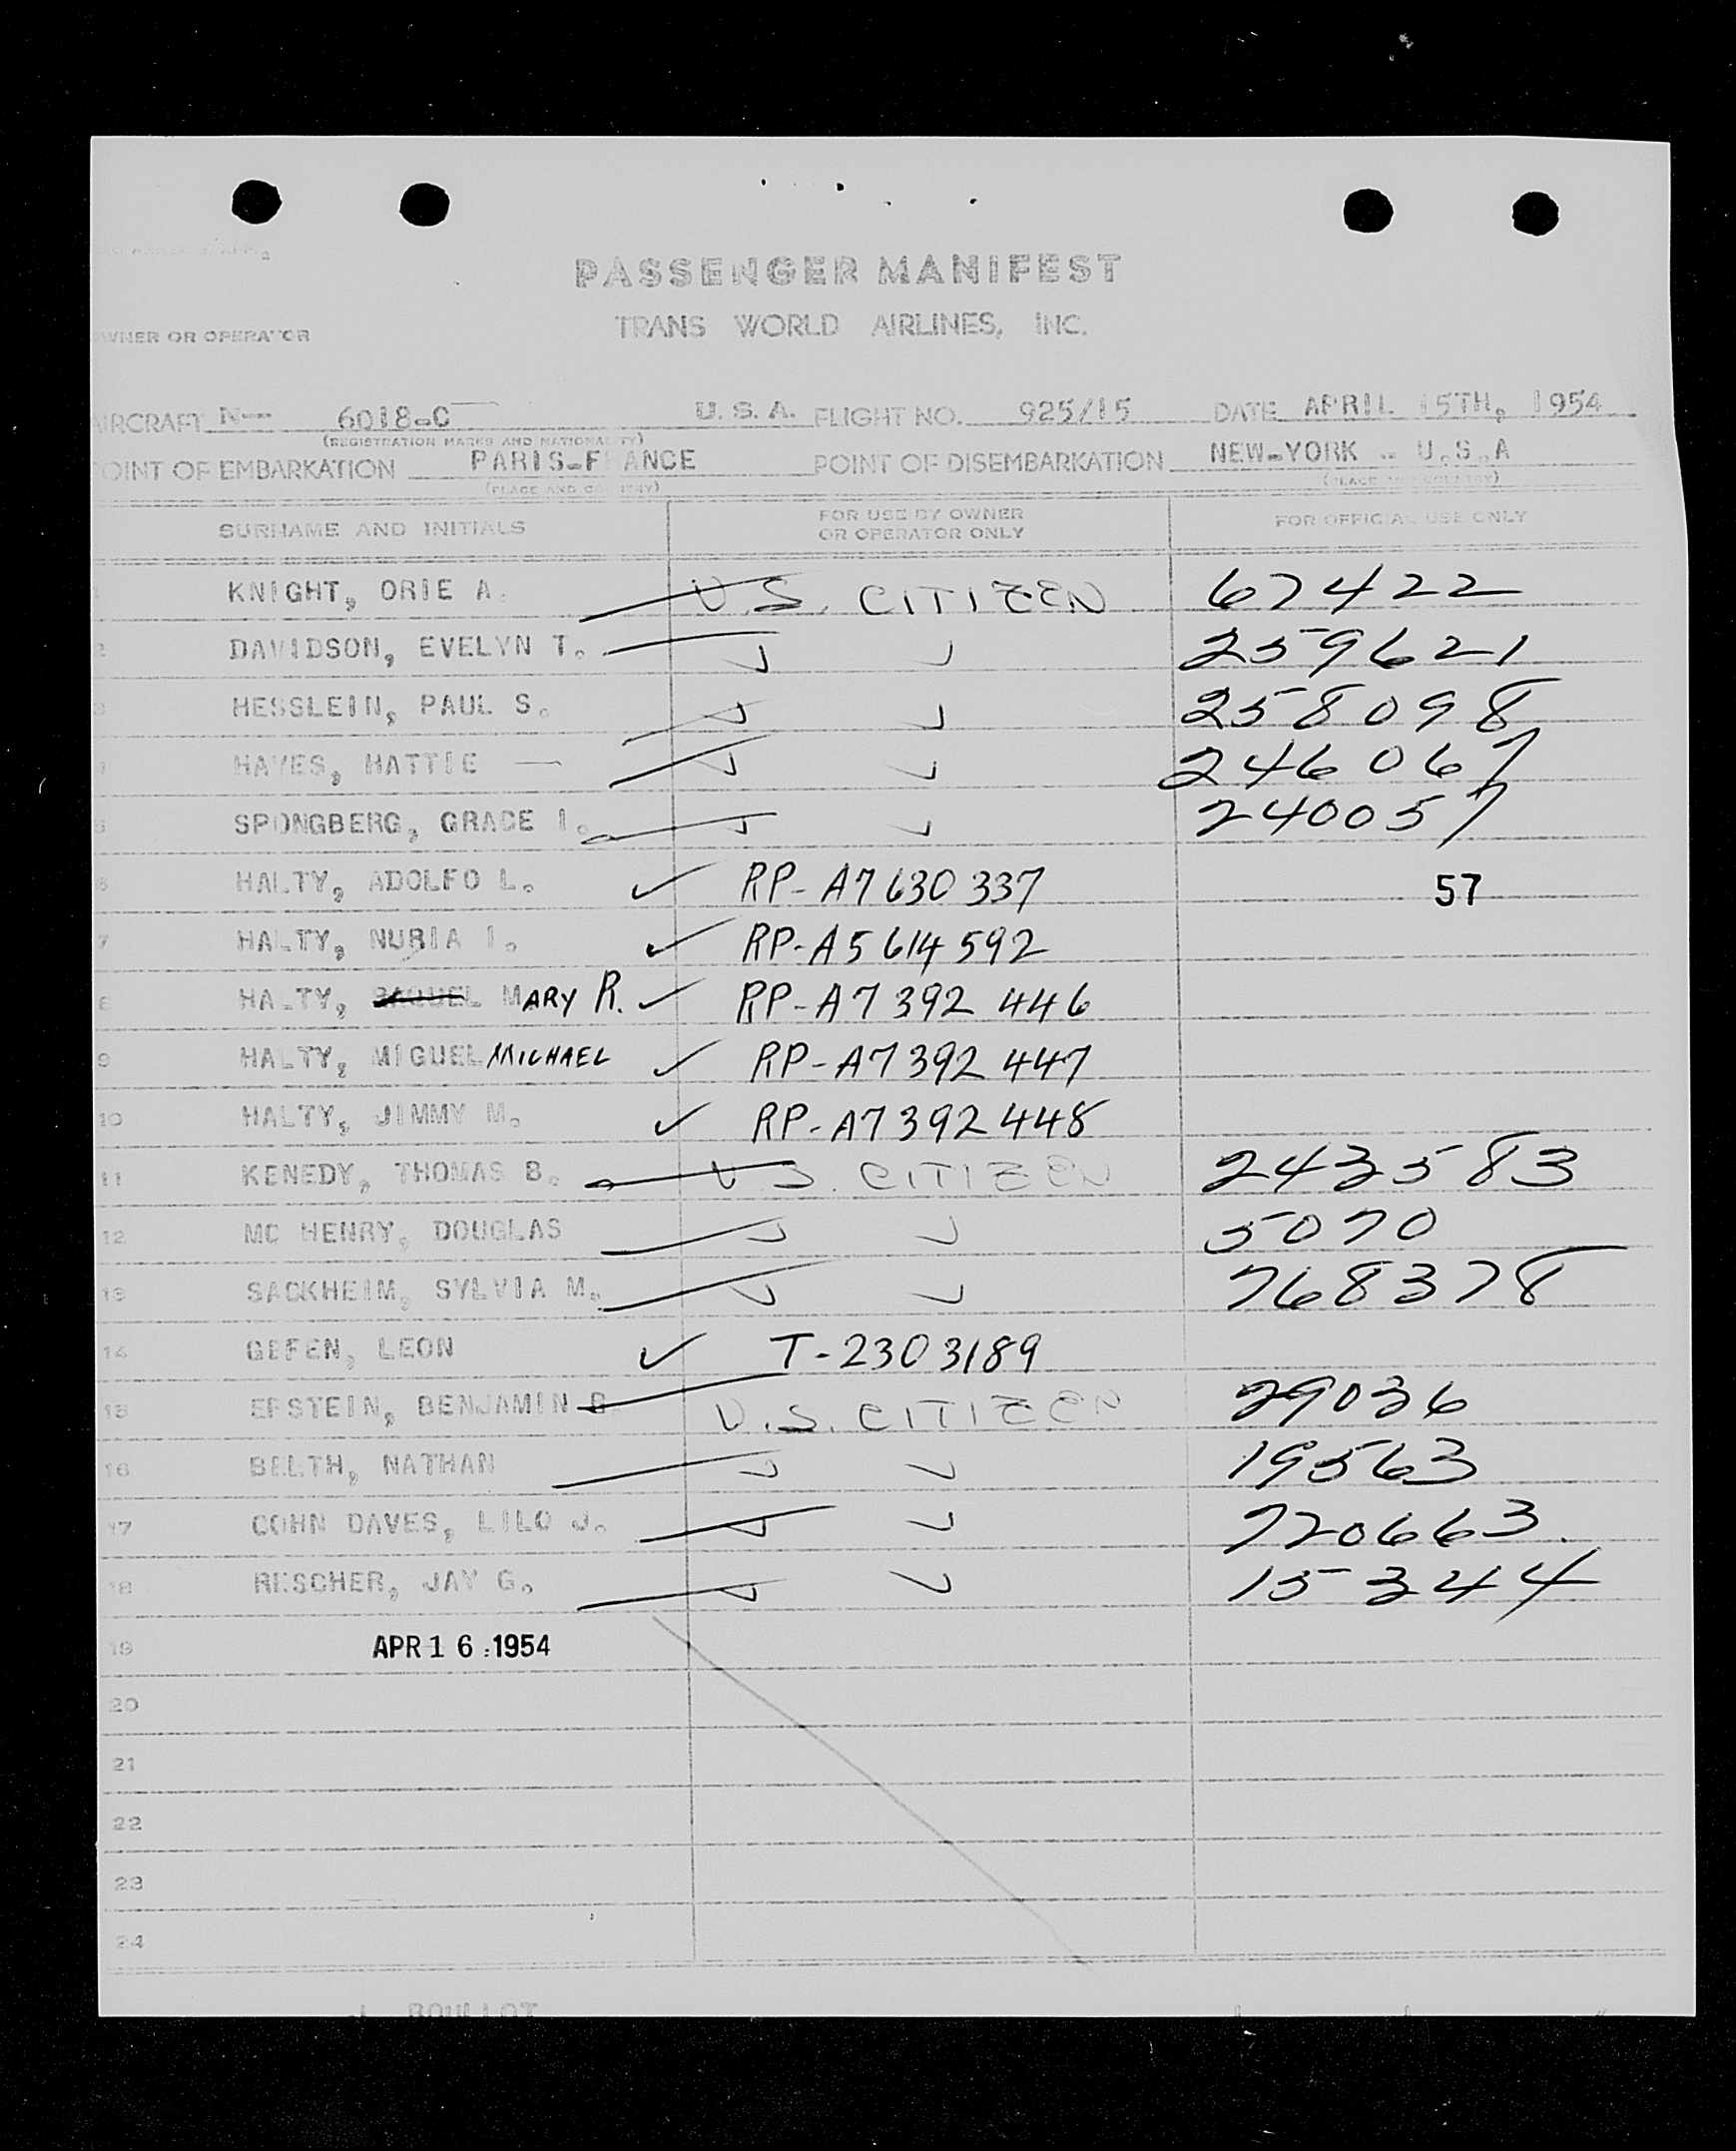 PASSENGER MANIFEST
TRANS WORLD AIRLINES, INC.
OWNER OR OPERATOR
AIRCRAFT N— 6018-C U.S.A. FLIGHT NO. 925/15 DATE APRIL 15TH, 1954
(REGISTRATION MARKS AND NATIONALITY)
POINT OF EMBARKATION PARIS-FRANCE POINT OF DISEMBARKATION NEW-YORK - U.S.A
(PLACE AND COUNTRY) (PLACE AND COUNTRY)
SURNAME AND INITIALS FOR USE BY OWNER OR OPERATOR ONLY FOR OFFICIAL USE ONLY
KNIGHT, ORIE A. U.S. CITIZEN 67422
2 DAVIDSON, EVELYN T. 259621
3 HESSLEIN, PAUL S. 258098
HAYES, HATTIE — 246067
5 SPONGBERG, GRACE I. 240057
6 HALTY, ADOLFO L. ✓ RP-A7 630 337 57
7 HALTY, NURIA I. ✓ RP-A5 614 592
8 HALTY, RAQUEL MARY R. ✓ RP-A7 392 446
9 HALTY, MIGUEL MICHAEL ✓ RP-A7 392 447
10 HALTY, JIMMY M. ✓ RP-A7 392 448
11 KENEDY, THOMAS B. U.S. CITIZEN 243583
12 MC HENRY, DOUGLAS 5070
13 SACKHEIM, SYLVIA M. 768378
14 GEFEN, LEON ✓ T-230 3189
15 EPSTEIN, BENJAMIN B. U.S. CITIZEN 29036
16 BELTH, NATHAN 19563
17 COHN DAVES, LILO J. 720663
18 RESCHER, JAY G. 15344
19 APR 16 1954
20
21
22
23
24
J. BOUILLOT